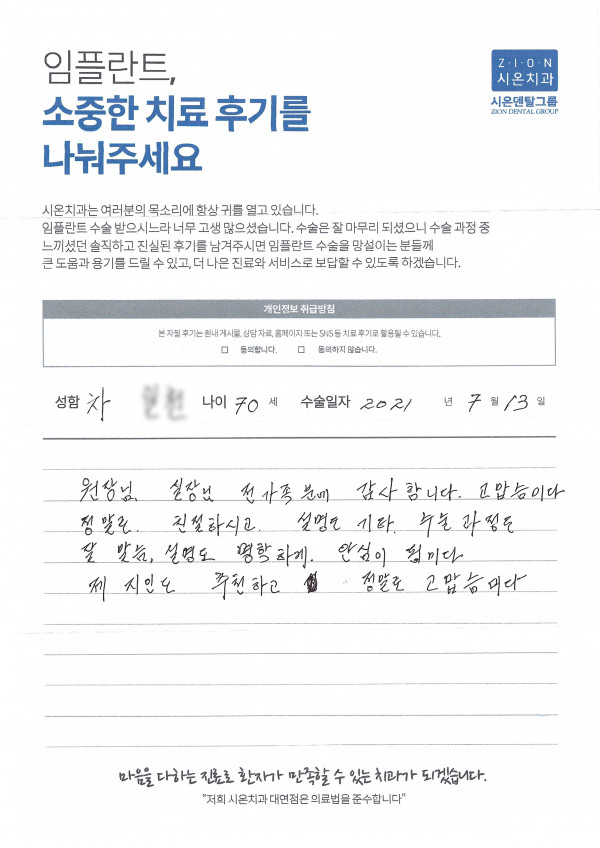 임플란트,
소중한 치료 후기를
나눠주세요
Z·I·O·N
시온치과
시온덴탈그룹
ZION DENTAL GROUP
시온치과는 여러분의 목소리에 항상 귀를 열고 있습니다.
임플란트 수술 받으시느라 너무 고생 많으셨습니다. 수술은 잘 마무리 되셨으니 수술 과정 중
느끼셨던 솔직하고 진실된 후기를 남겨주시면 임플란트 수술을 망설이는 분들께
큰 도움과 용기를 드릴 수 있고, 더 나은 진료와 서비스로 보답할 수 있도록 하겠습니다.
개인정보 취급방침
본 자필 후기는 원내 게시물, 상담 자료, 홈페이지 또는 SNS 등 치료 후기로 활용될 수 있습니다.
☐ 동의합니다. ☐ 동의하지 않습니다.
성함 차 나이 70 세 수술일자 2021 년 7 월 13 일
원장님 실장님 전가족분께 감사합니다. 고맙슴이다
정말로. 친절하시고. 설명도 기타. 수술 과정도
잘 맞슴, 설명도 명확하게. 안심이 됨미다
제 지인도 추천하고 정말로 고맙슴미다
마음을 다하는 진료로 환자가 만족할 수 있는 치과가 되겠습니다.
“저희 시온치과 대연점은 의료법을 준수합니다”